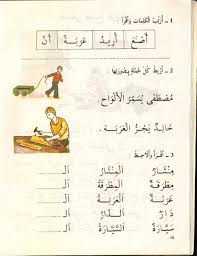 1 - أُرَتِّبُ الْكَلِمَاتِ وَأَقْرَأُ :
أَصْنَعَ أُرِيدُ عَرَبَةً أَنْ
2 - أَرْبِطُ كُلَّ جُمْلَةٍ بِصُورَتِهَا :
مُصْطَفَى يُسَمِّرُ الْأَلْوَاحَ.
خَالِدٌ يَجُرُّ الْعَرَبَةَ.
3 - أَقْرَأُ وَأُلَاحِظُ
مِنْشَارٌ الْمِنْشَارُ الْـ....
مِطْرَقَةٌ الْمِطْرَقَةُ الْـ....
عَرَبَةٌ الْعَرَبَةُ الْـ....
دَارٌ الدَّارُ الْـ....
سَيَّارَةٌ السَّيَّارَةُ الْـ....